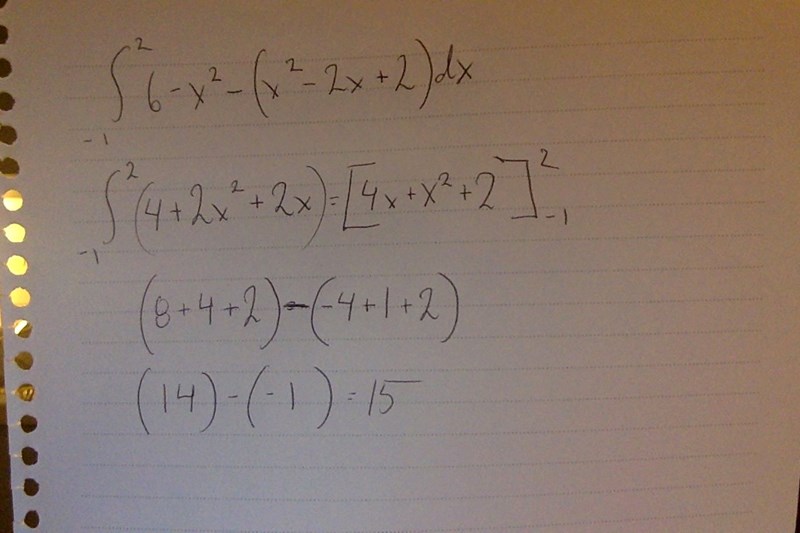 ∫₋₁² 6 - x² - (x² - 2x + 2) dx
∫₋₁² (4 + 2x² + 2x) = [4x + x² + 2]₋₁²
(8 + 4 + 2) - (-4 + 1 + 2)
(14) - (-1) = 15